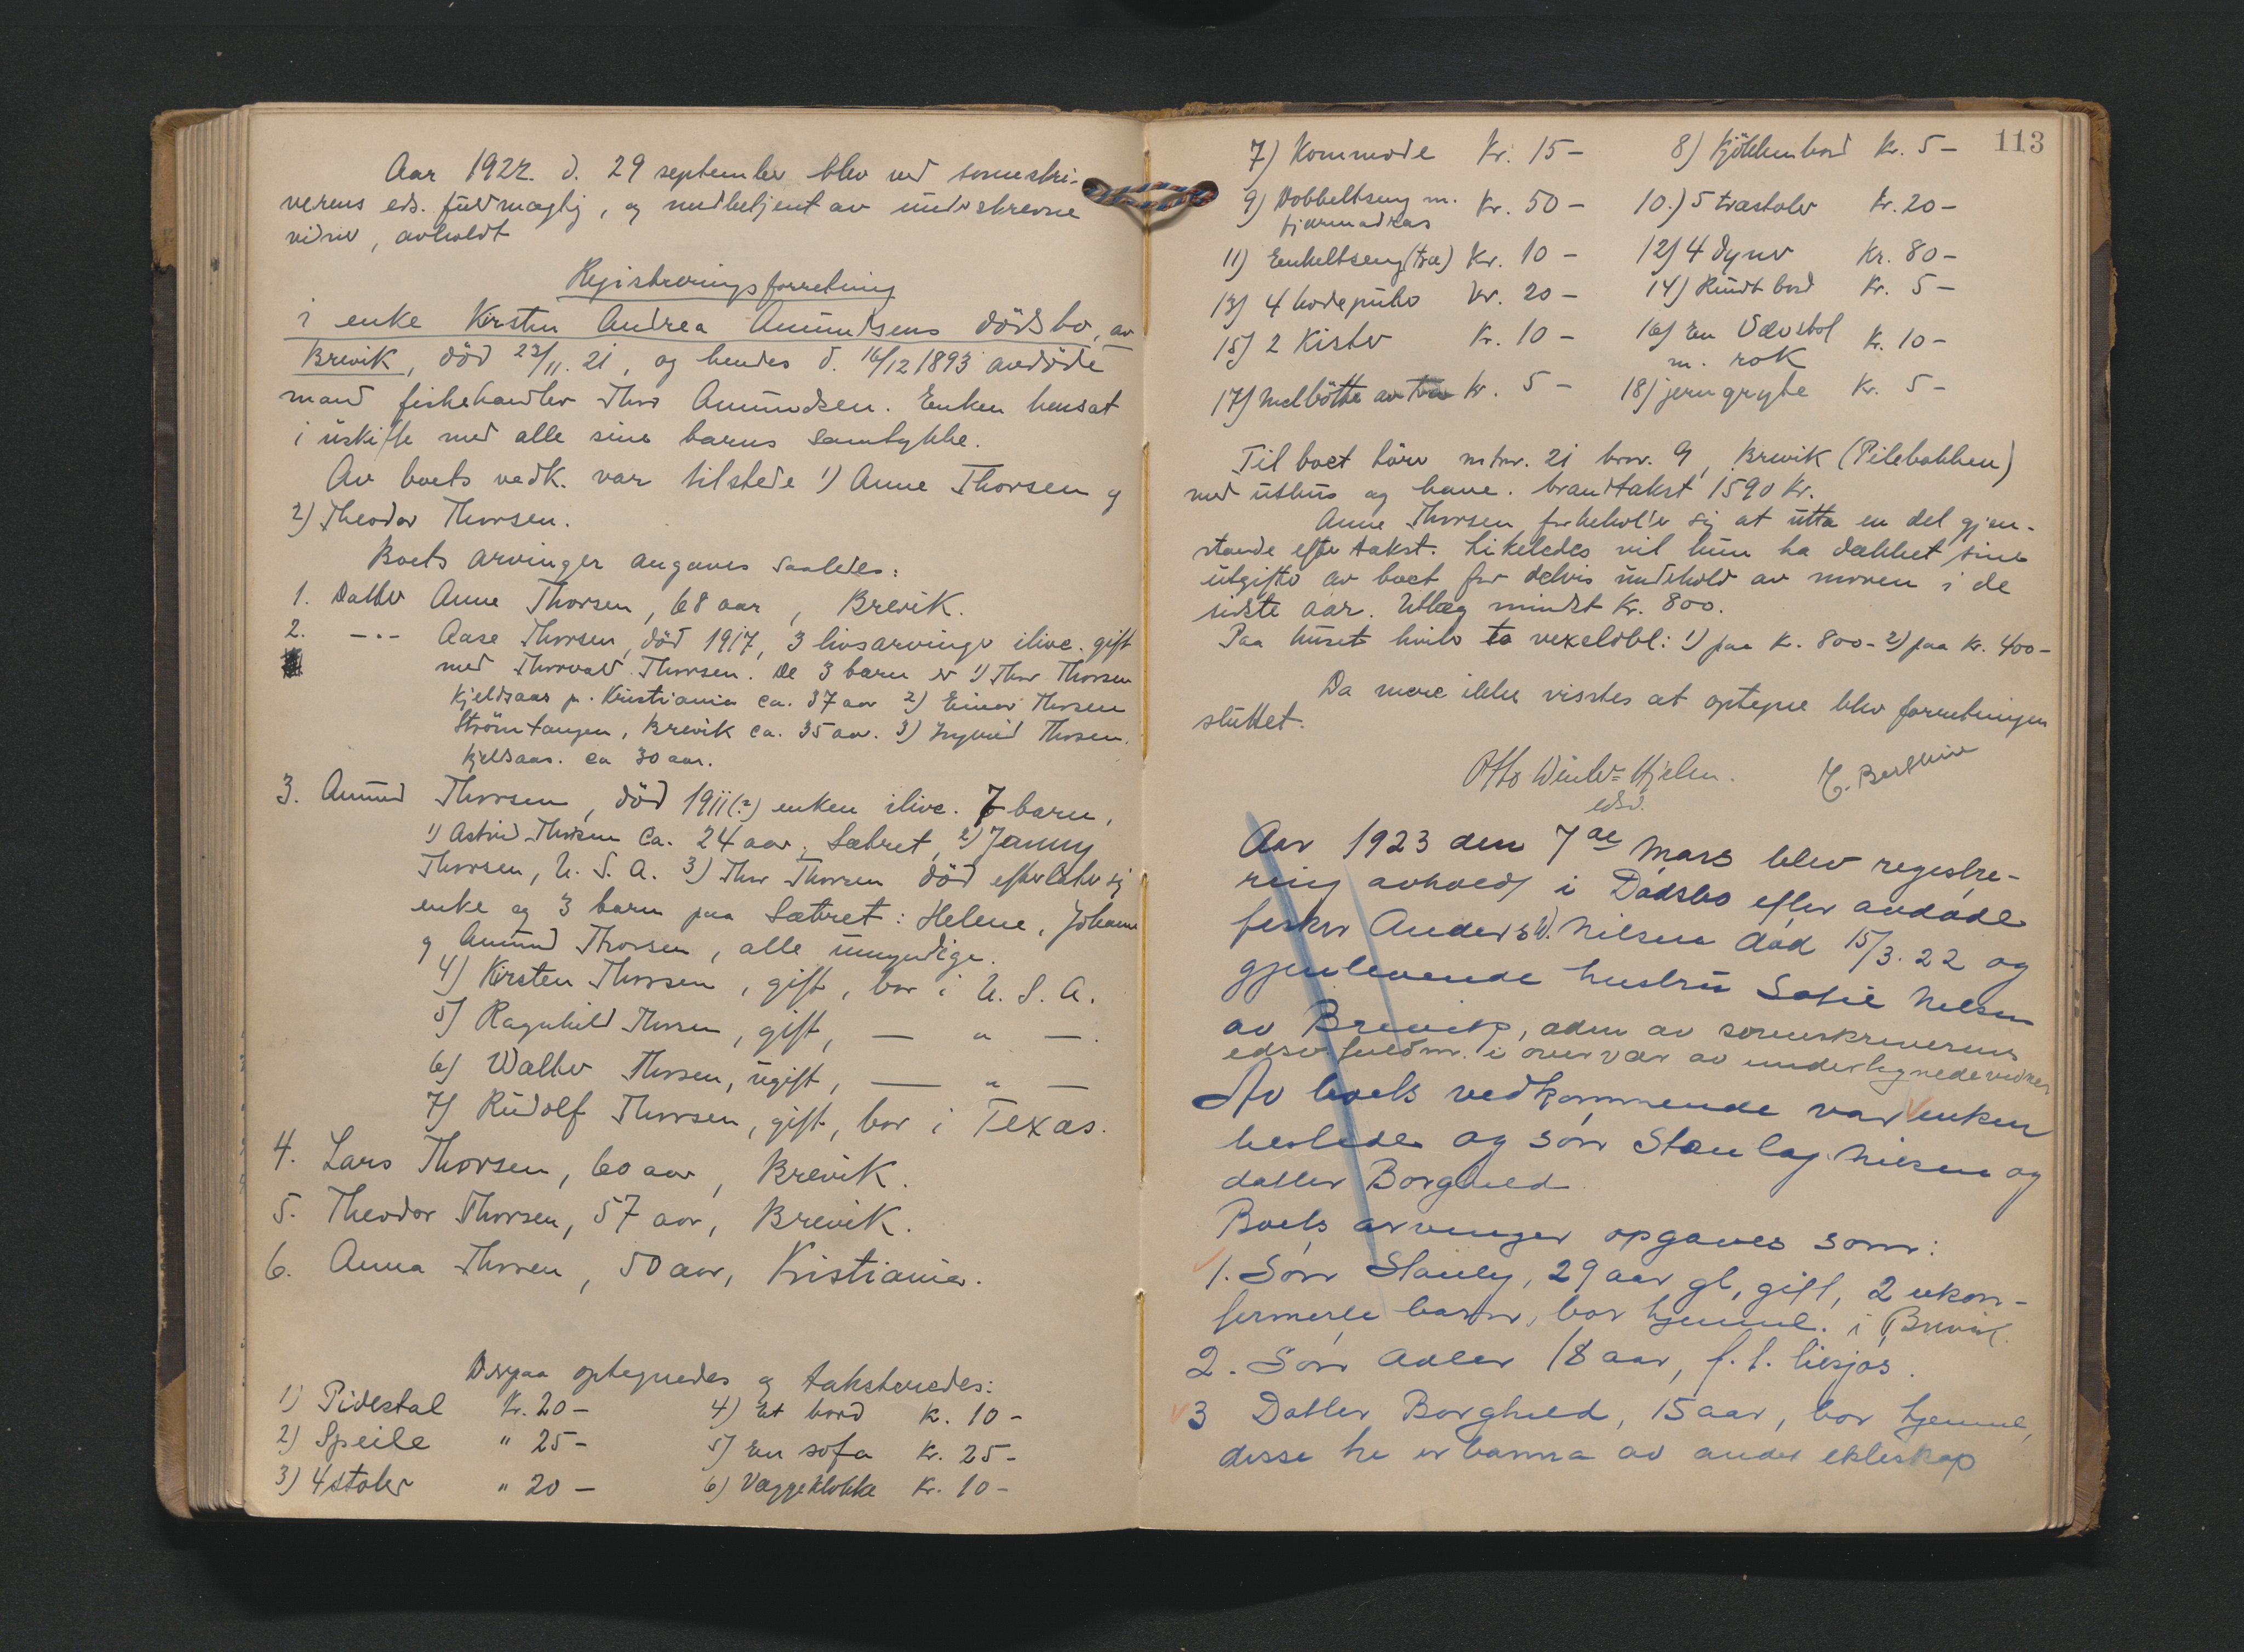 Aar 1922. d. 29 september blev ved sorenskri-
verens eds. fuldmægtig, og medbetjent av underskrevne
vidne, avholdt
Registreringsforretning
i enke Kirsten Andrea Amundsens dödsbo, av
Brevik, död 23/11. 21, og hendes d. 16/12 1893 avdöde
mand fiskehandler Thor Amundsen. Enken hensat
i uskifte med alle sine barns samtykke.
Av boets vedk. var tilstede 1) Anne Thorsen og
2) Theodor Thorsen.
Boets arvinger angaves saaledes:
1. Datter Anne Thorsen, 68 aar, Brevik.
2. -"- Aase Thorsen, död 1917, 3 livsarvinger ilive. gift
med Thorvald Thorsen. De 3 barn er 1) Thor Thorsen
Kjeldsaas p. Kristiania ca. 37 aar 2) Einar Thorsen
Strömtangen, Brevik ca. 35 aar. 3) Ingrid Thorsen.
Kjeldsaas. ca 30 aar.
3. Amund Thorsen, död 1911(?) enken ilive. 7 barn,
1) Astrid Thorsen ca. 24 aar, Sætret, 2) Jenny
Thorsen, U. S. A. 3) Thor Thorsen död efterlater sig
enke og 3 barn paa Sætret: Helene, Johanne
og Amund Thorsen, alle umyndige.
4) Kirsten Thorsen, gift, bor i U. S. A.
5) Ragnhild Thorsen, gift, — " —.
6) Walter Thorsen, ugift, — " —
7) Rudolf Thorsen, gift, bor i Texas.
4. Lars Thorsen, 60 aar, Brevik.
5. Theodor Thorsen, 57 aar, Brevik.
6. Anna Thorsen, 50 aar, Kristiania.
Derpaa optegnedes og taksteredes:
1) Pidestal Kr. 20 - 4) Et bord Kr. 10 -
2) Speile " 25 - 5) En sofa Kr. 25 -
3) 4 stoler " 20 - 6) Væggeklokke Kr. 10 -
113
7) Kommode Kr. 15 - 8) Kjökkenbord Kr. 5 -
9) Dobbeltseng m. Kr. 50 - 10.) 5 træstoler Kr. 20 -
fjærmadras
11) Enkeltseng (træ) Kr. 10 - 12) 4 dyner Kr. 80 -
13) 4 hodeputer Kr. 20 - 14) Rundt bord Kr. 5 -
15) 2 Kister Kr. 10 - 16) En Vævstol Kr. 10 -
m. rok
17) Melbötte av træ Kr. 5 - 18) jerngryte Kr. 5 -
Til boet hörer mtnr. 21 brnr. 9, Brevik (Pilebakken)
med uthus og have. brandtakst 1590 Kr.
Anne Thorsen forbeholder sig at utta en del gjen-
stande efter takst. Likeledes vil hun ha dækket sine
utgifter av boet for delvis underhold av moren i de
sidste aar. Utlæg mindst Kr. 800.
Paa huset hviler to vexelobl: 1) paa Kr. 800 - 2) paa Kr. 400 -
Da mere ikke visstes at optegne blev forretningen
sluttet.
Otto Winter-Hjelm.
edsv.
Aar 1923 den 7de Mars blev registre-
ring avholdt i Dødsbo efter avdøde
fisker Anders W. Nilsen død 15/3. 22 og
gjenlevende hustru Sofie Nilsen
av Brevik, aden av sorenskriverens
edsv. fuldm. i overvær av undertegnede vidner
Av boets vedkommende var enken
tilstede og sønn Stanley Nilsen og
datter Borghild
Boets arvinger opgaves som:
1. Sønn Stanley, 29 aar gl, gift, 2 ukon-
firmerte barn, bor hjemme i Brevik.
2. Sønn Adler 18 aar, f. t. tilsjøs.
3 Datter Borghild, 15 aar, bor hjemme,
disse tre er barna av andet ekteskap